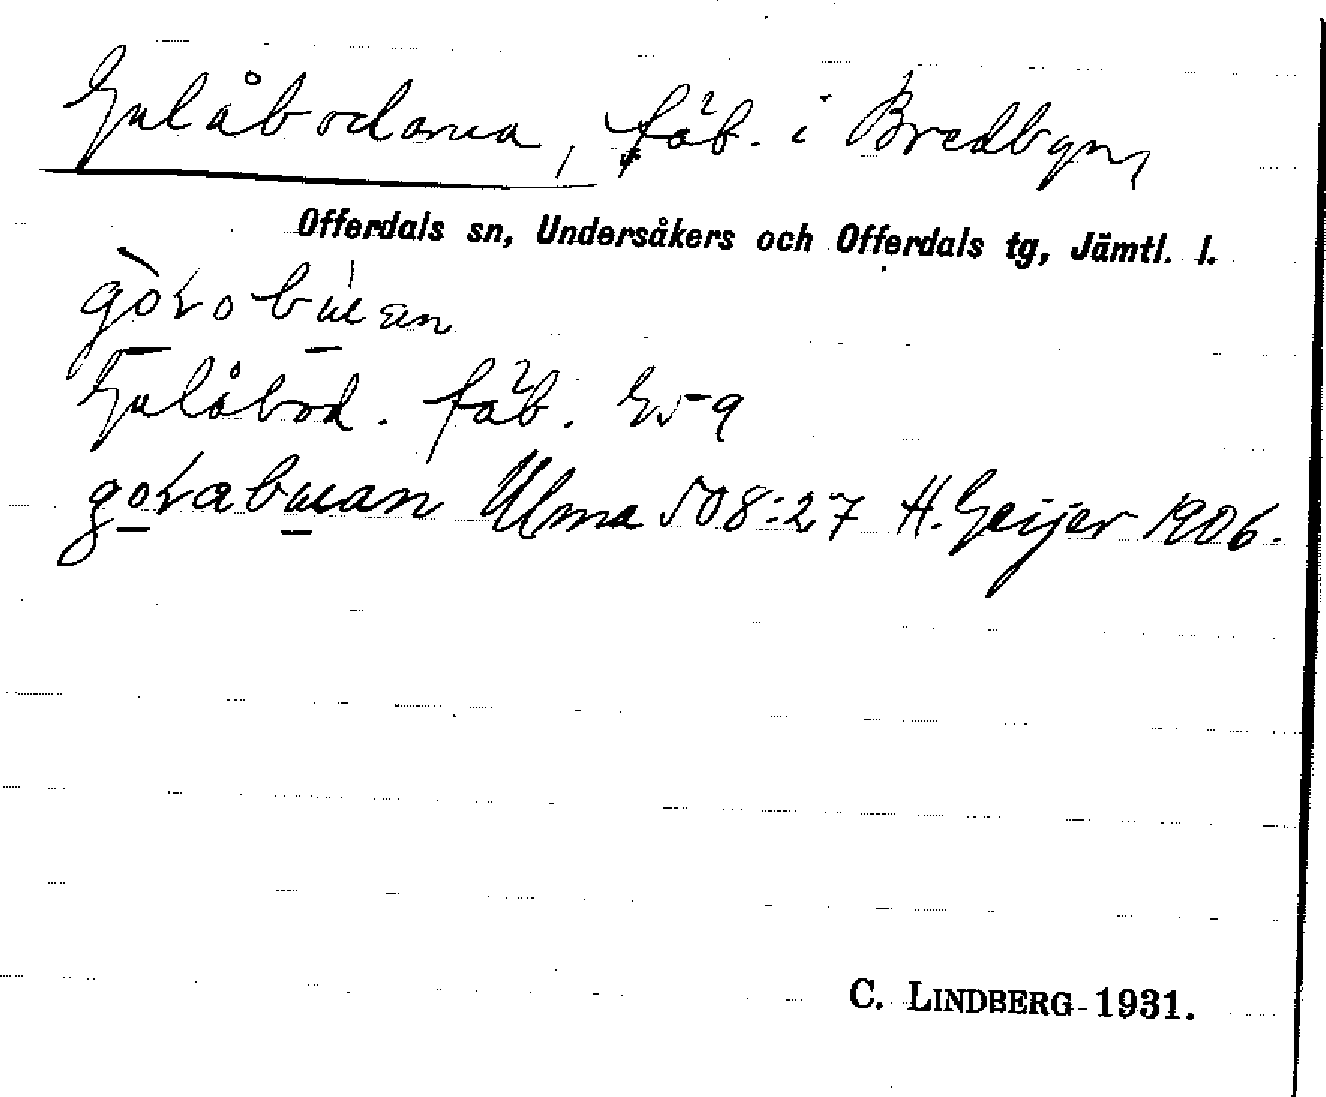 Gulåbodarna, fäb. i Bredbyn,
Offerdals sn, Undersåkers och Offerdals tg, Jämtl. l.
Gulåbod. fäb.
Ulma 508:27 H. Geijer 1906.
C. LINDBERG 1931.